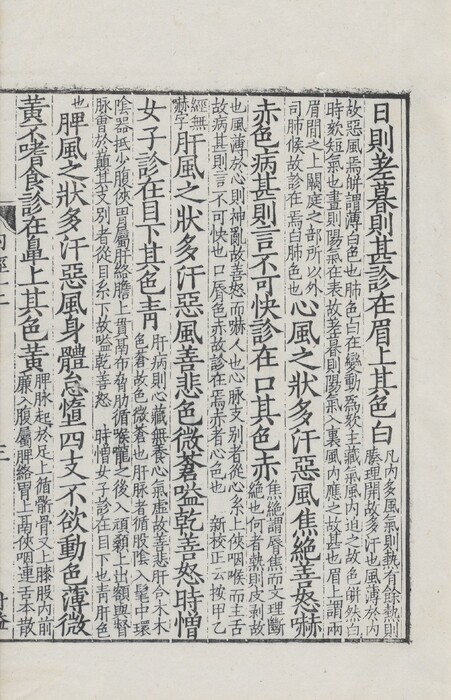 日則差暮則甚診在眉上其色白
凡内多風氣則熱有餘熱則
腠理開故多汗也風薄於内
故惡風焉皏謂薄白色也肺色白在變動為欬主藏氣風内迫之故色皏然白
時欬短氣也晝則陽氣在表故差暮則陽氣入裏風内應之故甚也眉上謂兩
眉間之上闕庭之部所以外
司肺候故診在焉白肺色也
心風之狀多汗惡風焦絕善怒嚇
赤色病甚則言不可快診在口其色赤
焦絕謂脣焦而文理斷
絕也何者熱則皮剥故
也風薄於心則神亂故善怒而嚇人也心脉支别者從心系上俠咽喉而主舌
故病甚則言不可快也口脣色赤故診在焉赤者心色也 新校正云按甲乙
經無
嚇字
肝風之狀多汗惡風善悲色微蒼嗌乾善怒時憎
女子診在目下其色青
肝病則心藏無養心氣虚故善悲肝合木木
色蒼故色微蒼也肝脉者循股陰入髦中環
陰器抵少腹俠胃屬肝絡膽上貫鬲布脅肋循喉嚨之後入頏顙上出額與督
脉會於巔其支别者從目系下故嗌乾善怒 時憎女子診在目下也青肝色
也
脾風之狀多汗惡風身體怠墯四支不欲動色薄微
黃不嗜食診在鼻上其色黃
脾脉起於足上循䯒骨又上膝股内前
廉入腹屬脾絡胃上鬲俠咽連舌本散